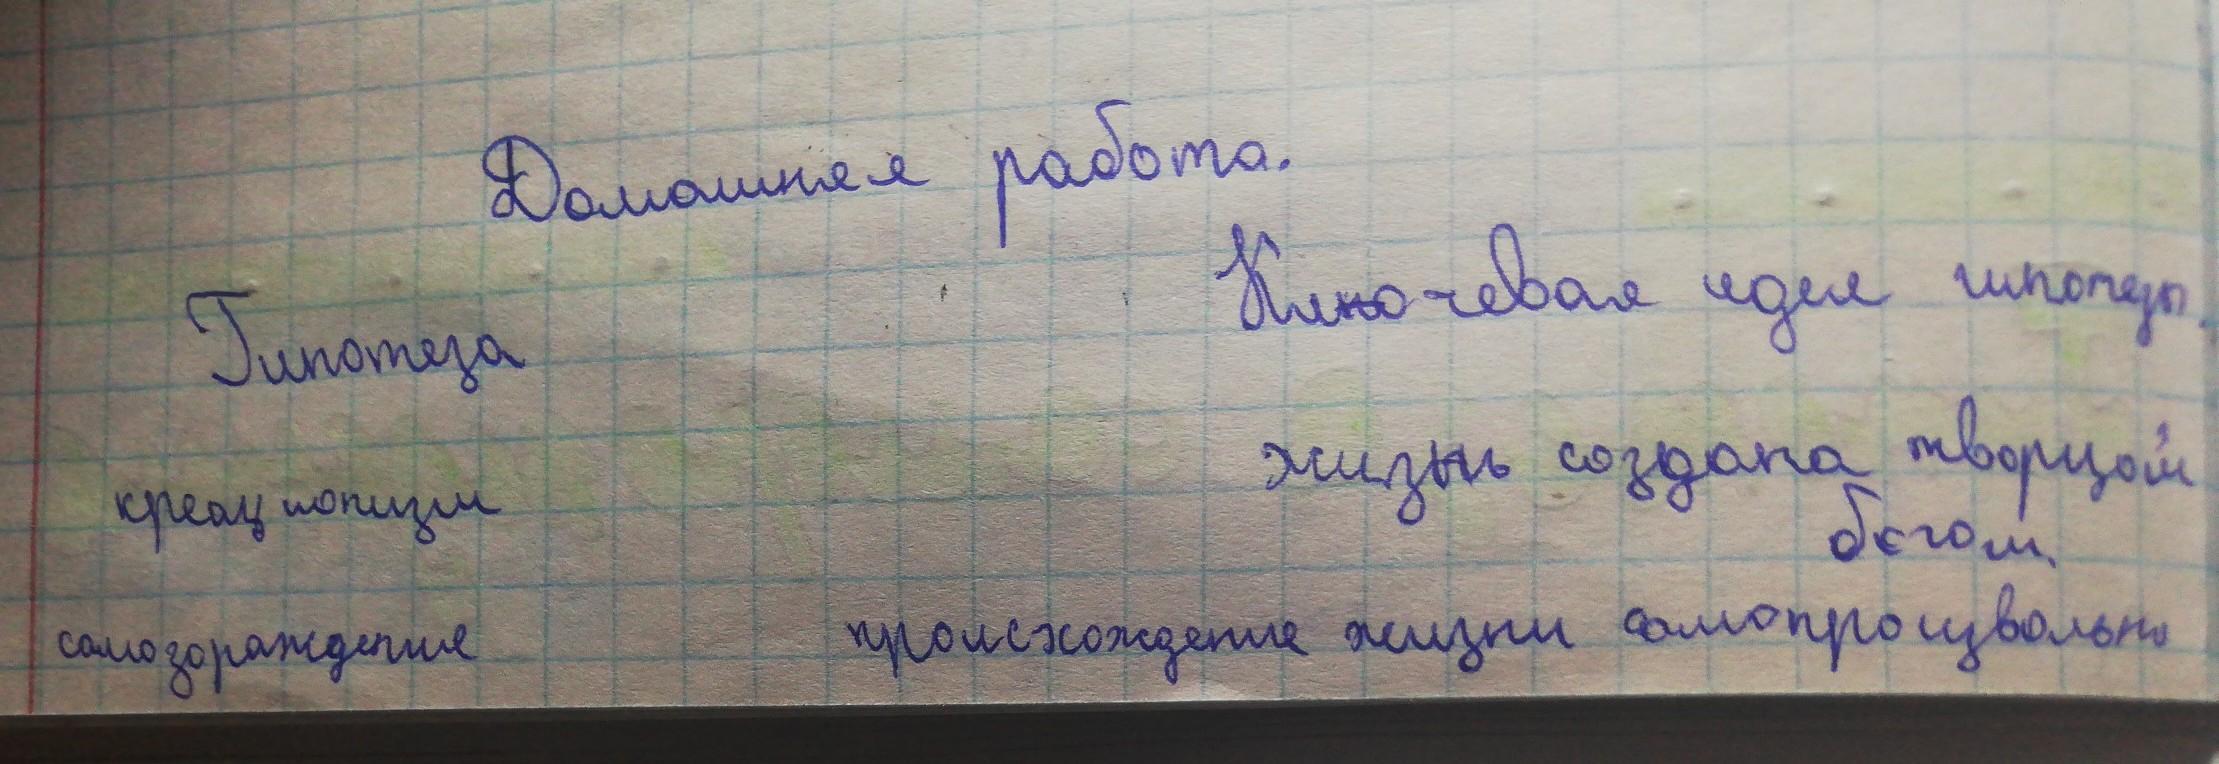 Домашняя работа.
Гипотеза Ключевая идея гипотезы.
креационизм жизнь создана творцом
богом.
самозораждение происхождение жизни самопроизвольно